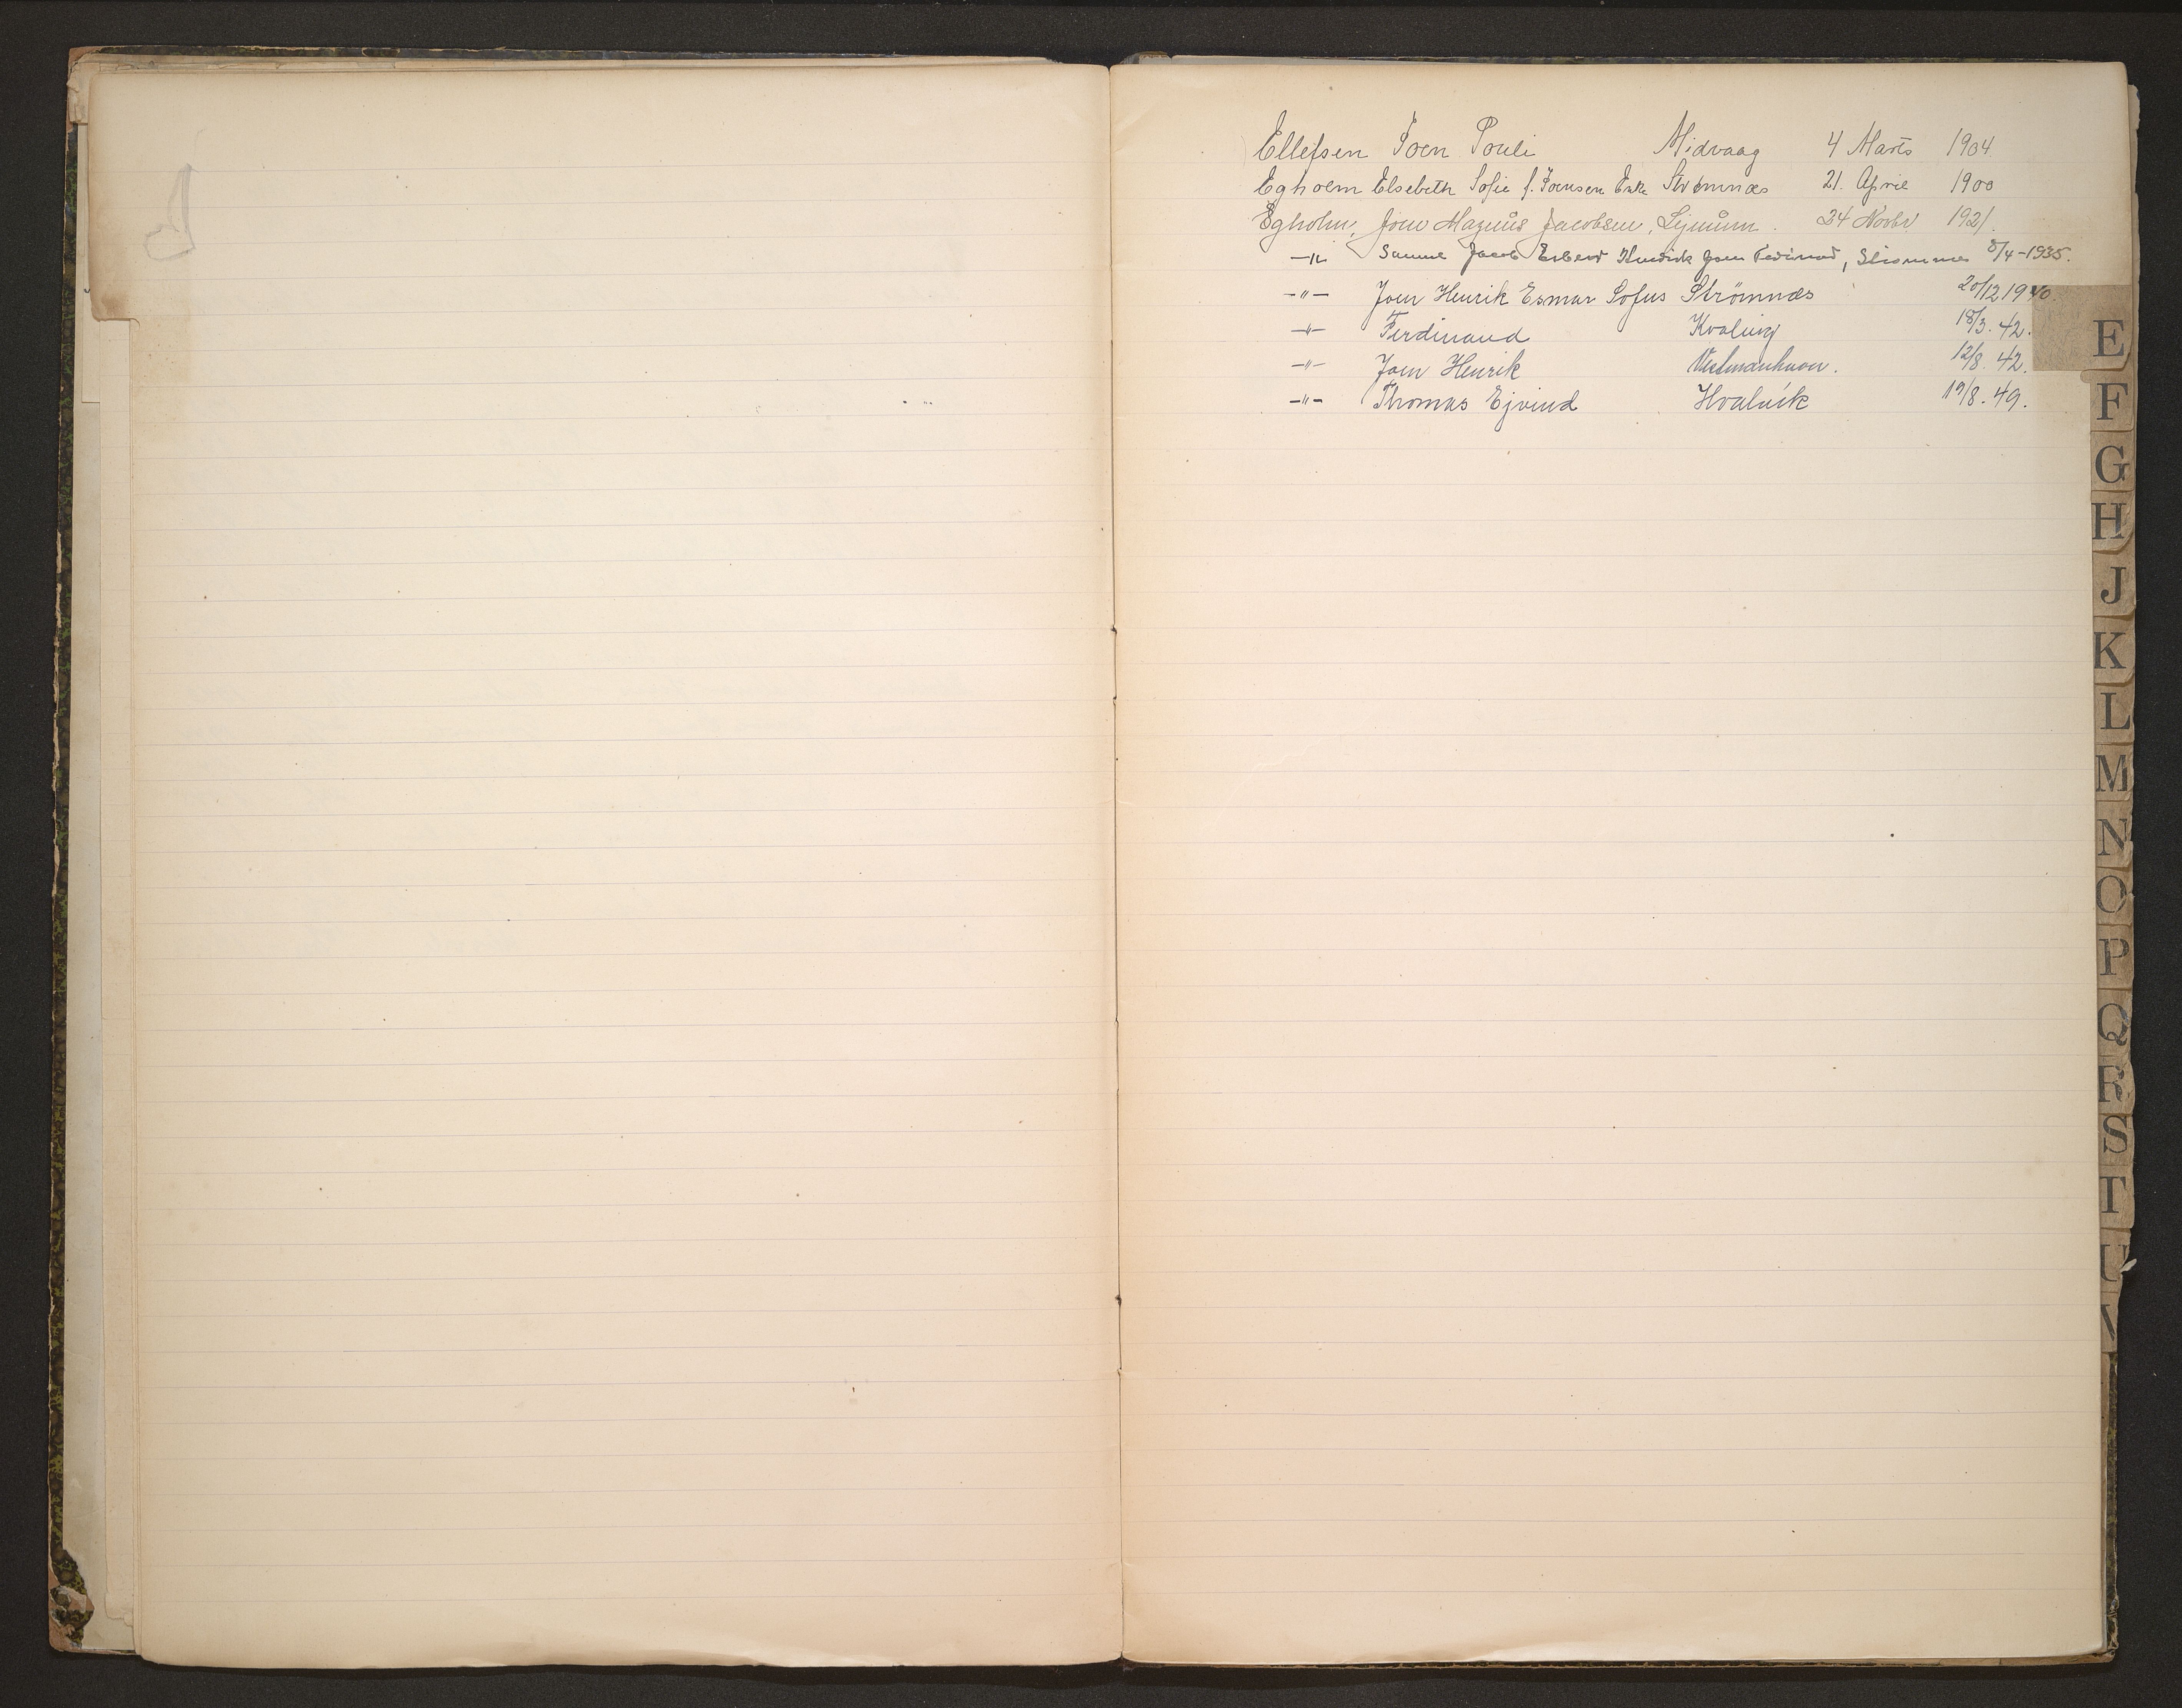 Ellefsen Joen Pouli Midvaag 4 Marts 1904.
Egholm Elsebeth Sofie f. Joensen Enke Strømnæs 21. April 1900
Egholm, Joen Magnus Jacobsen, Lejnum. 24 Novbr 1921.
-"- Sanne Jacob Esbern Hendrik Joen Ferdinand, Strømnæs 8/4-1935.
-"- Joen Henrik Esmar Sofus Strömnæs 20/12 1940.
-"- Ferdinand Kvalvig 18/3. 42.
-"- Joen Henrik Vestmanhavn. 12/8. 42.
-"- Thomas Ejvind Hvalvík 19/8. 49.
E
F
G
H
J
K
L
M
N
O
P
Q
R
S
T
U